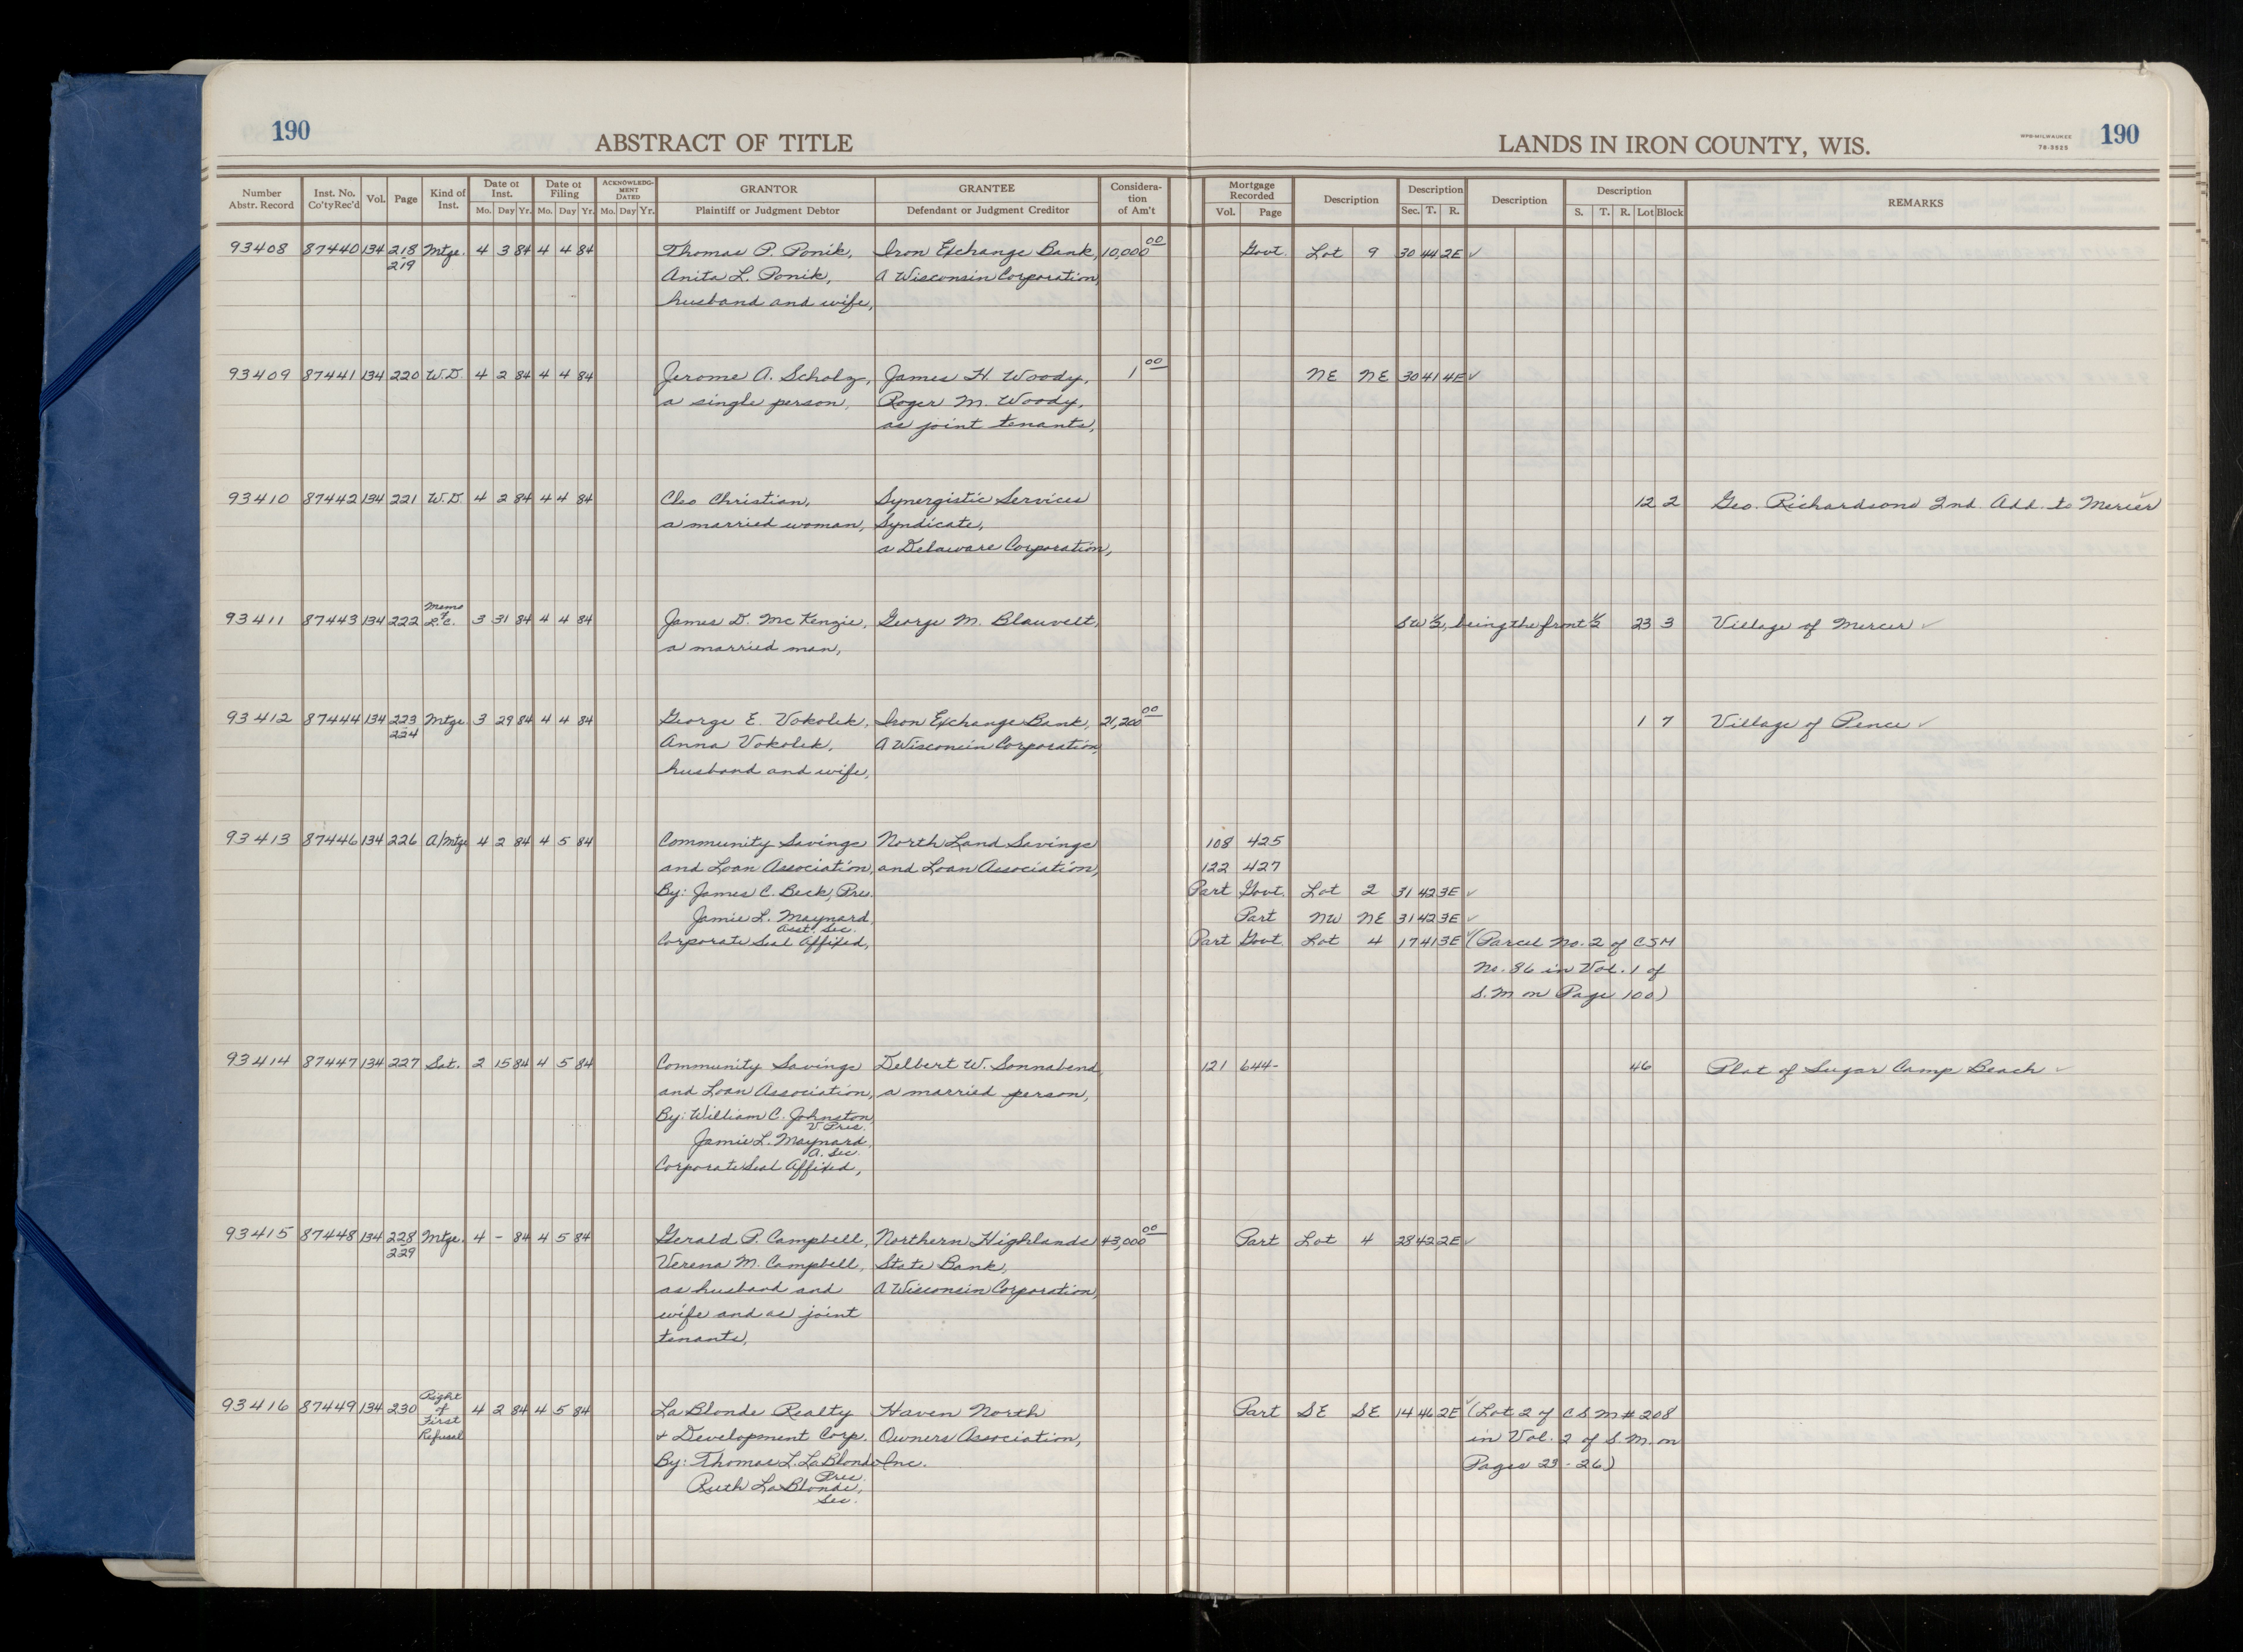 190 190
ABSTRACT OF TITLE LANDS IN IRON COUNTY, WIS.
WPB-MILWAUKEE
78-3525
Number Abstr. Record Inst. No. Co'ty Rec'd Vol. Page Kind of Inst. Date of Inst. Mo. Day Yr. Date of Filing Mo. Day Yr. ACKNOWLEDGMENT DATED Mo. Day Yr. GRANTOR Plaintiff or Judgment Debtor GRANTEE Defendant or Judgment Creditor Consideration of Am't Mortgage Recorded Vol. Page Description Description Sec. T. R. Description Description S. T. R. Lot Block REMARKS
93408 87440 134 218 Mtge. 4 3 84 4 4 84 Thomas P. Ponik, Iron Exchange Bank, 10,000 00 Govt. Lot 9 30 44 2E ✓
219 Anita L. Ponik, A Wisconsin Corporation,
husband and wife,
93409 87441 134 220 W.D 4 2 84 4 4 84 Jerome A. Scholz, James H. Woody, 1 00 NE NE 30 41 4E ✓
a single person, Roger M. Woody,
as joint tenants,
93410 87442 134 221 W.D. 4 2 84 4 4 84 Cleo Christian, Synergistic Services 12 2 Geo. Richardsons 2nd. Add. to Mercer ✓
a married woman, Syndicate,
a Delaware Corporation,
93411 87443 134 222 Memo of L.C. 3 31 84 4 4 84 James D. Mc Kenzie, George M. Blauvelt, SW ½, being the front ½ 23 3 Village of Mercer ✓
a married man,
93412 87444 134 223 Mtge. 3 29 84 4 4 84 George E. Vokolek, Iron Exchange Bank, 21,200 00 1 7 Village of Pence ✓
224 Anna Vokolek, A Wisconsin Corporation,
husband and wife,
93413 87446 134 226 A/Mtge 4 2 84 4 5 84 Community Savings North Land Savings 108 425
and Loan Association, and Loan Association, 122 427
By: James C. Beck, Pres. Part Govt. Lot 2 31 42 3E ✓
Jamie L. Maynard, Part NW NE 31 42 3E ✓
Asst. Sec.
Corporate Seal Affixed, Part Govt. Lot 4 17 41 3E ✓ (Parcel No. 2 of CSM
No. 86 in Vol. 1 of
S.M on Page 100)
93414 87447 134 227 Sat. 2 15 84 4 5 84 Community Savings Delbert W. Sonnabend, 121 644- 46 Plat of Sugar Camp Beach ✓
and Loan Association, a married person,
By: William C. Johnston,
V. Pres.
Jamie L. Maynard,
A. Sec.
Corporate Seal Affixed,
93415 87448 134 228 Mtge. 4 - 84 4 5 84 Gerald P. Campbell, Northern Highlands 43,000 00 Part Lot 4 28 42 2E ✓
229 Verena M. Campbell, State Bank,
as husband and A Wisconsin Corporation,
wife and as joint
tenants,
93416 87449 134 230 Right of First Refusal 4 2 84 4 5 84 La Blonde Realty Haven North Part SE SE 14 46 2E ✓ (Lot 2 of CSM # 208
& Development Corp. Owners Association, in Vol. 2 of S.M. on
By: Thomas L. La Blonde Inc. Pages 25-26)
Pres.
Ruth La Blonde,
Sec.